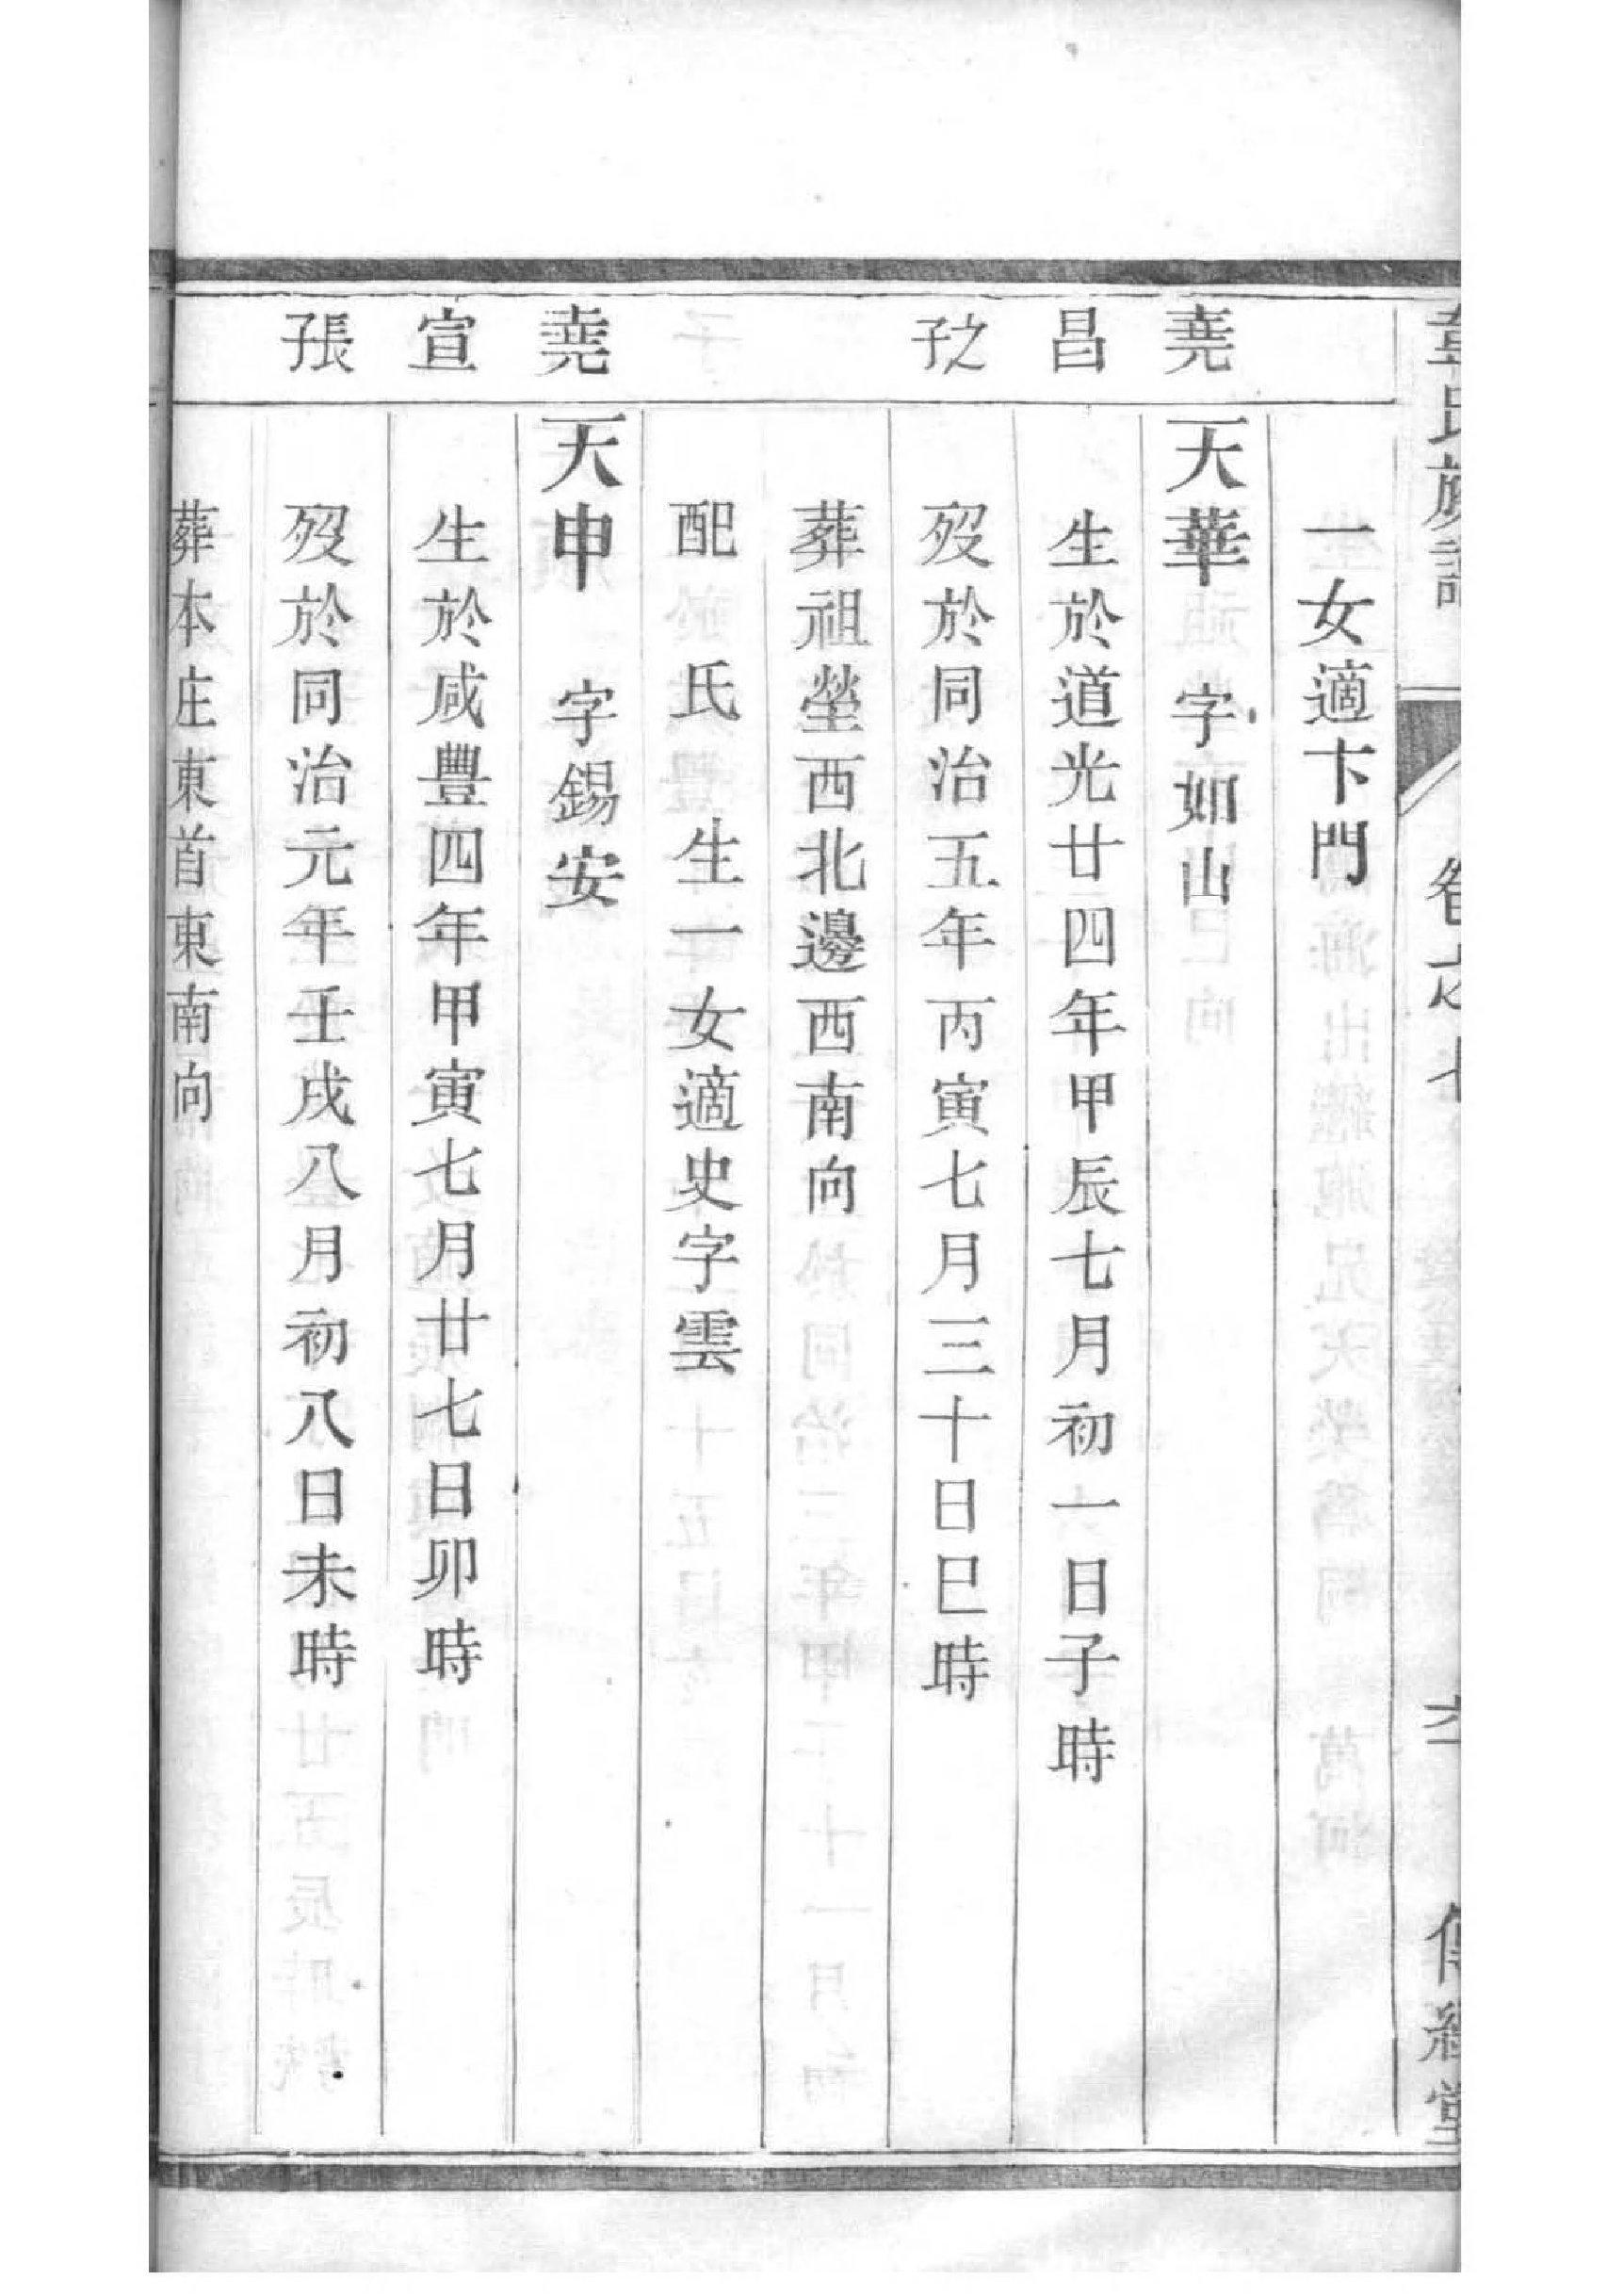 氏族譜 卷之七 六 傳經堂
一女適卞門
堯 天華 字如山
昌 生於道光廿四年甲辰七月初一日子時
之子 歿於同治五年丙寅七月三十日巳時
葬祖塋西北邊西南向
配 氏 生一女適史字雲
堯 天申 字錫安
宣 生於咸豐四年甲寅七月廿七日卯時
長子 歿於同治元年壬戌八月初八日未時
葬本庄東首東南向